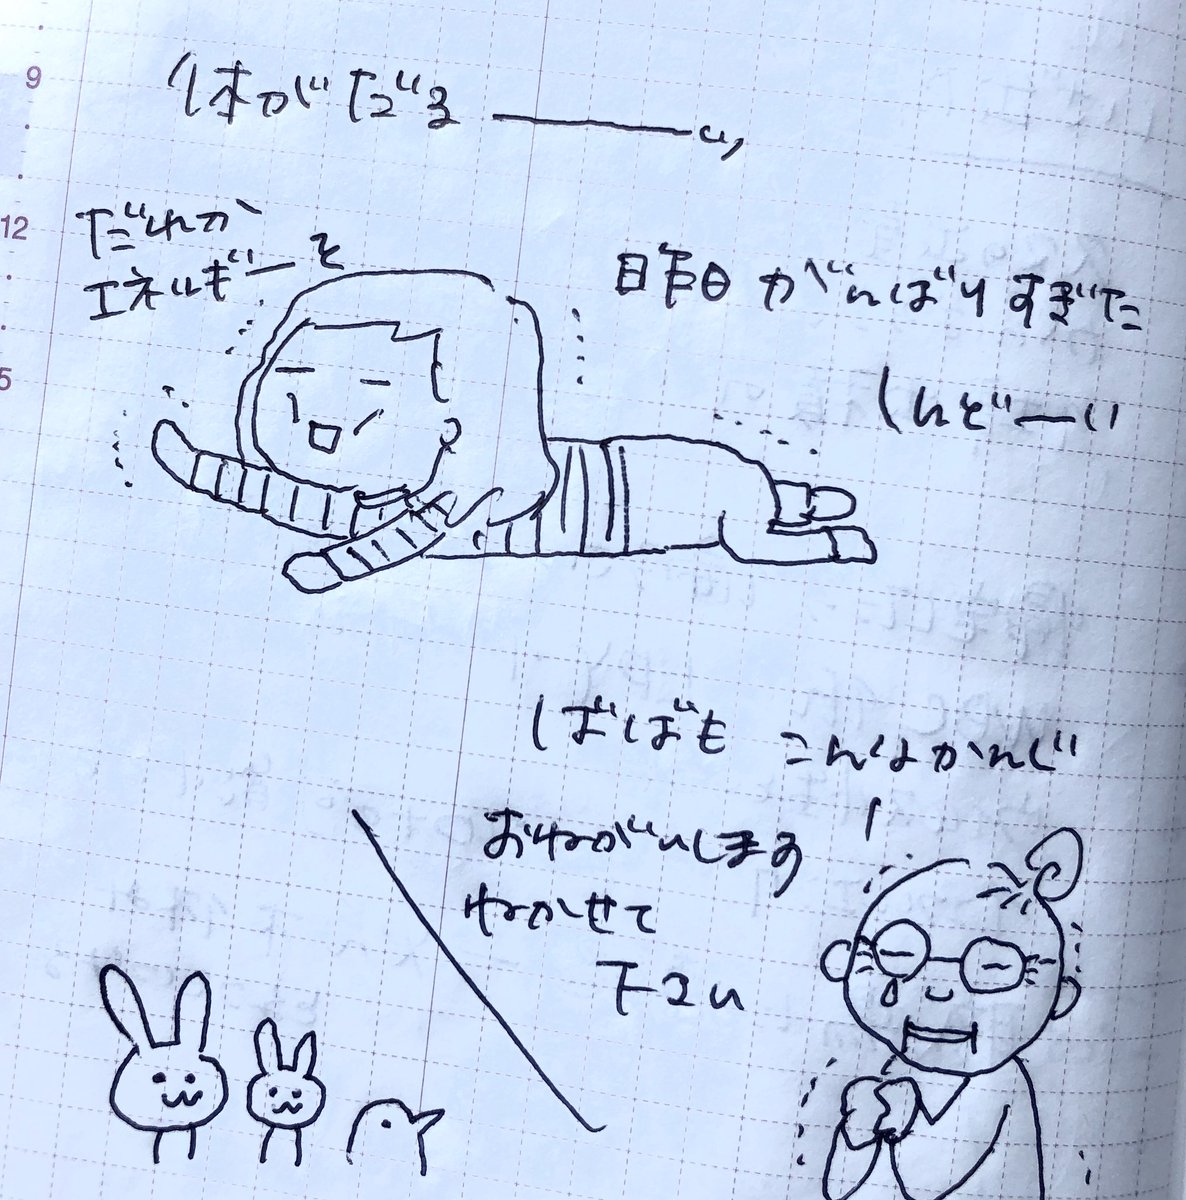 体がだる──い
だれか
エネルギーを
昨日がんばりすぎた
しんどーい
ばぁばも こんなかんじ
おねがいします
ねかせて
下さい
9
12
5